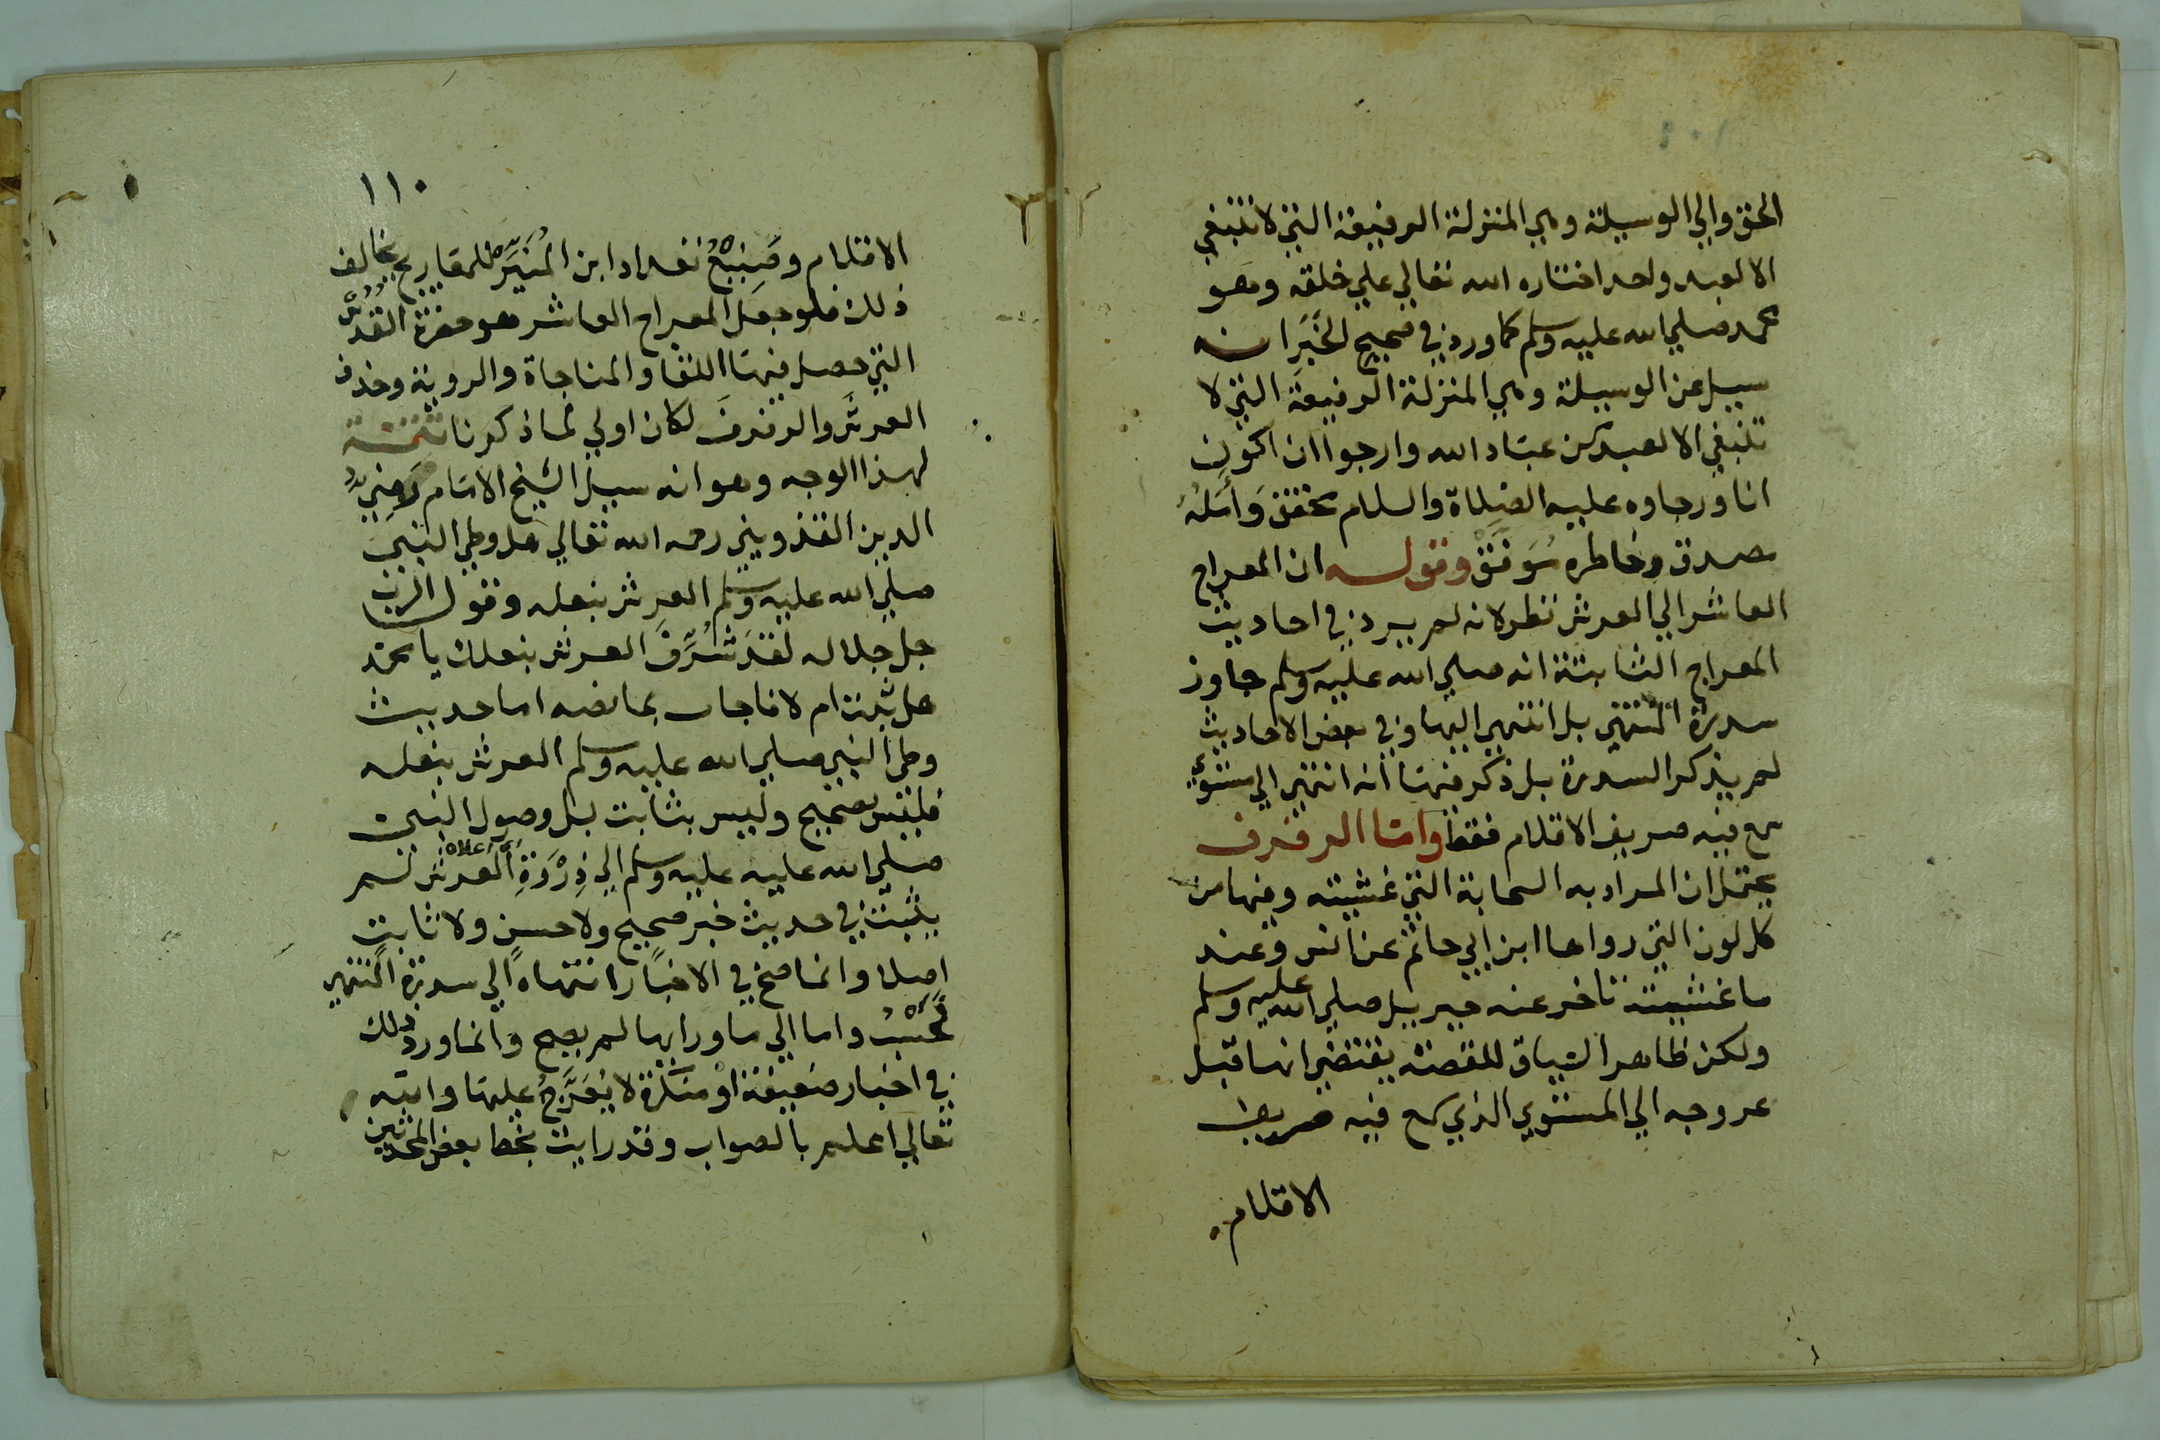 الحق والي الوسيلة وهي المنزلة الرفيعة التي لا تنبغي
الا لعبد واحد اختاره الله تعالي علي خلقه وهو
محمد صلي الله عليه وسلم كما ورد في صحيح الخَبَر انه
سيل عن الوسيلة وهي المنزلة الرفيعة التي لا
تنبغي الا لعبد من عباد الله وارجوا ان اكون
انا ورجاوه عليه الصلاة والسلام محقق وَأمَلهُ
صدق وخاطره مُوَفَّق وقوله ان المعراج
العاشر الي العرش نظر لانه لم يرد في احاديث
المعراج الثابتة انه صلي الله عليه وسلم جاوز
سدرة المنتهي بل انتهي اليها وفي بعض الاحاديث
لم يذكر السدرة بل ذكر فيها أنه انتهي الي مستوي
سمع فيه صريف الاقلام فقط واما الرفرف
يحتمل ان المراد به السحابة التي غشيته وفيها من
كل لون التي رواها ابن ابي حاتم عن انس وعند
ما غشيته تاخر عنه جبريل صلي الله عليه وسلم
ولكن ظاهر السياق للقصة يقتضي انها قبل
عروجه الي المستوي الذي سمع فيه صريف
الاقلام
١١٠
الاقلام وصَنِيعُ تعداد ابن المُنَيَّر للمعاريج يخالف
ذلك فلو جعل المعراج العاشر هو حضرة القُدُس
التي حصل فيها اللقا والمناجاة والروية وحذف
العرش والرفرف لكان اولي لما ذكرنا تتمة
لهذا الوجه وهو انه سيل الشيخ الامام رَضِيُّ
الدين القزويني رحمه الله تعالي هل وطي النبي
صلي الله عليه وسلم العرش بنعله وقول الرب
جل جلاله لقد شُرِّفَ العرش بنعلك يا محمد
هل ثبت ام لا فاجاب بما نصه اما حديث
وطي النبي صلي الله عليه وسلم العرش بنعله
فليس بصحيح وليس بثابت بل وصول النبي
صلي الله عليه عليه وسلم الي ذِرْوَةِ العرش اعلاه لم
يثبت في حديث خبر صحيح ولا حسن ولا ثابت
اصلا وانما صح في الاخبار انتهاهً الي سدرة المنتهي
فَحَسْبُ واما الي ما ورايها لم يصح وانما ورد ذلك
في اخبار ضعيفة اوْ منكرة لا يُعَرَّجُ عليها والله
تعالي اعلم بالصواب وقد رايت بخط بعض المحدثين